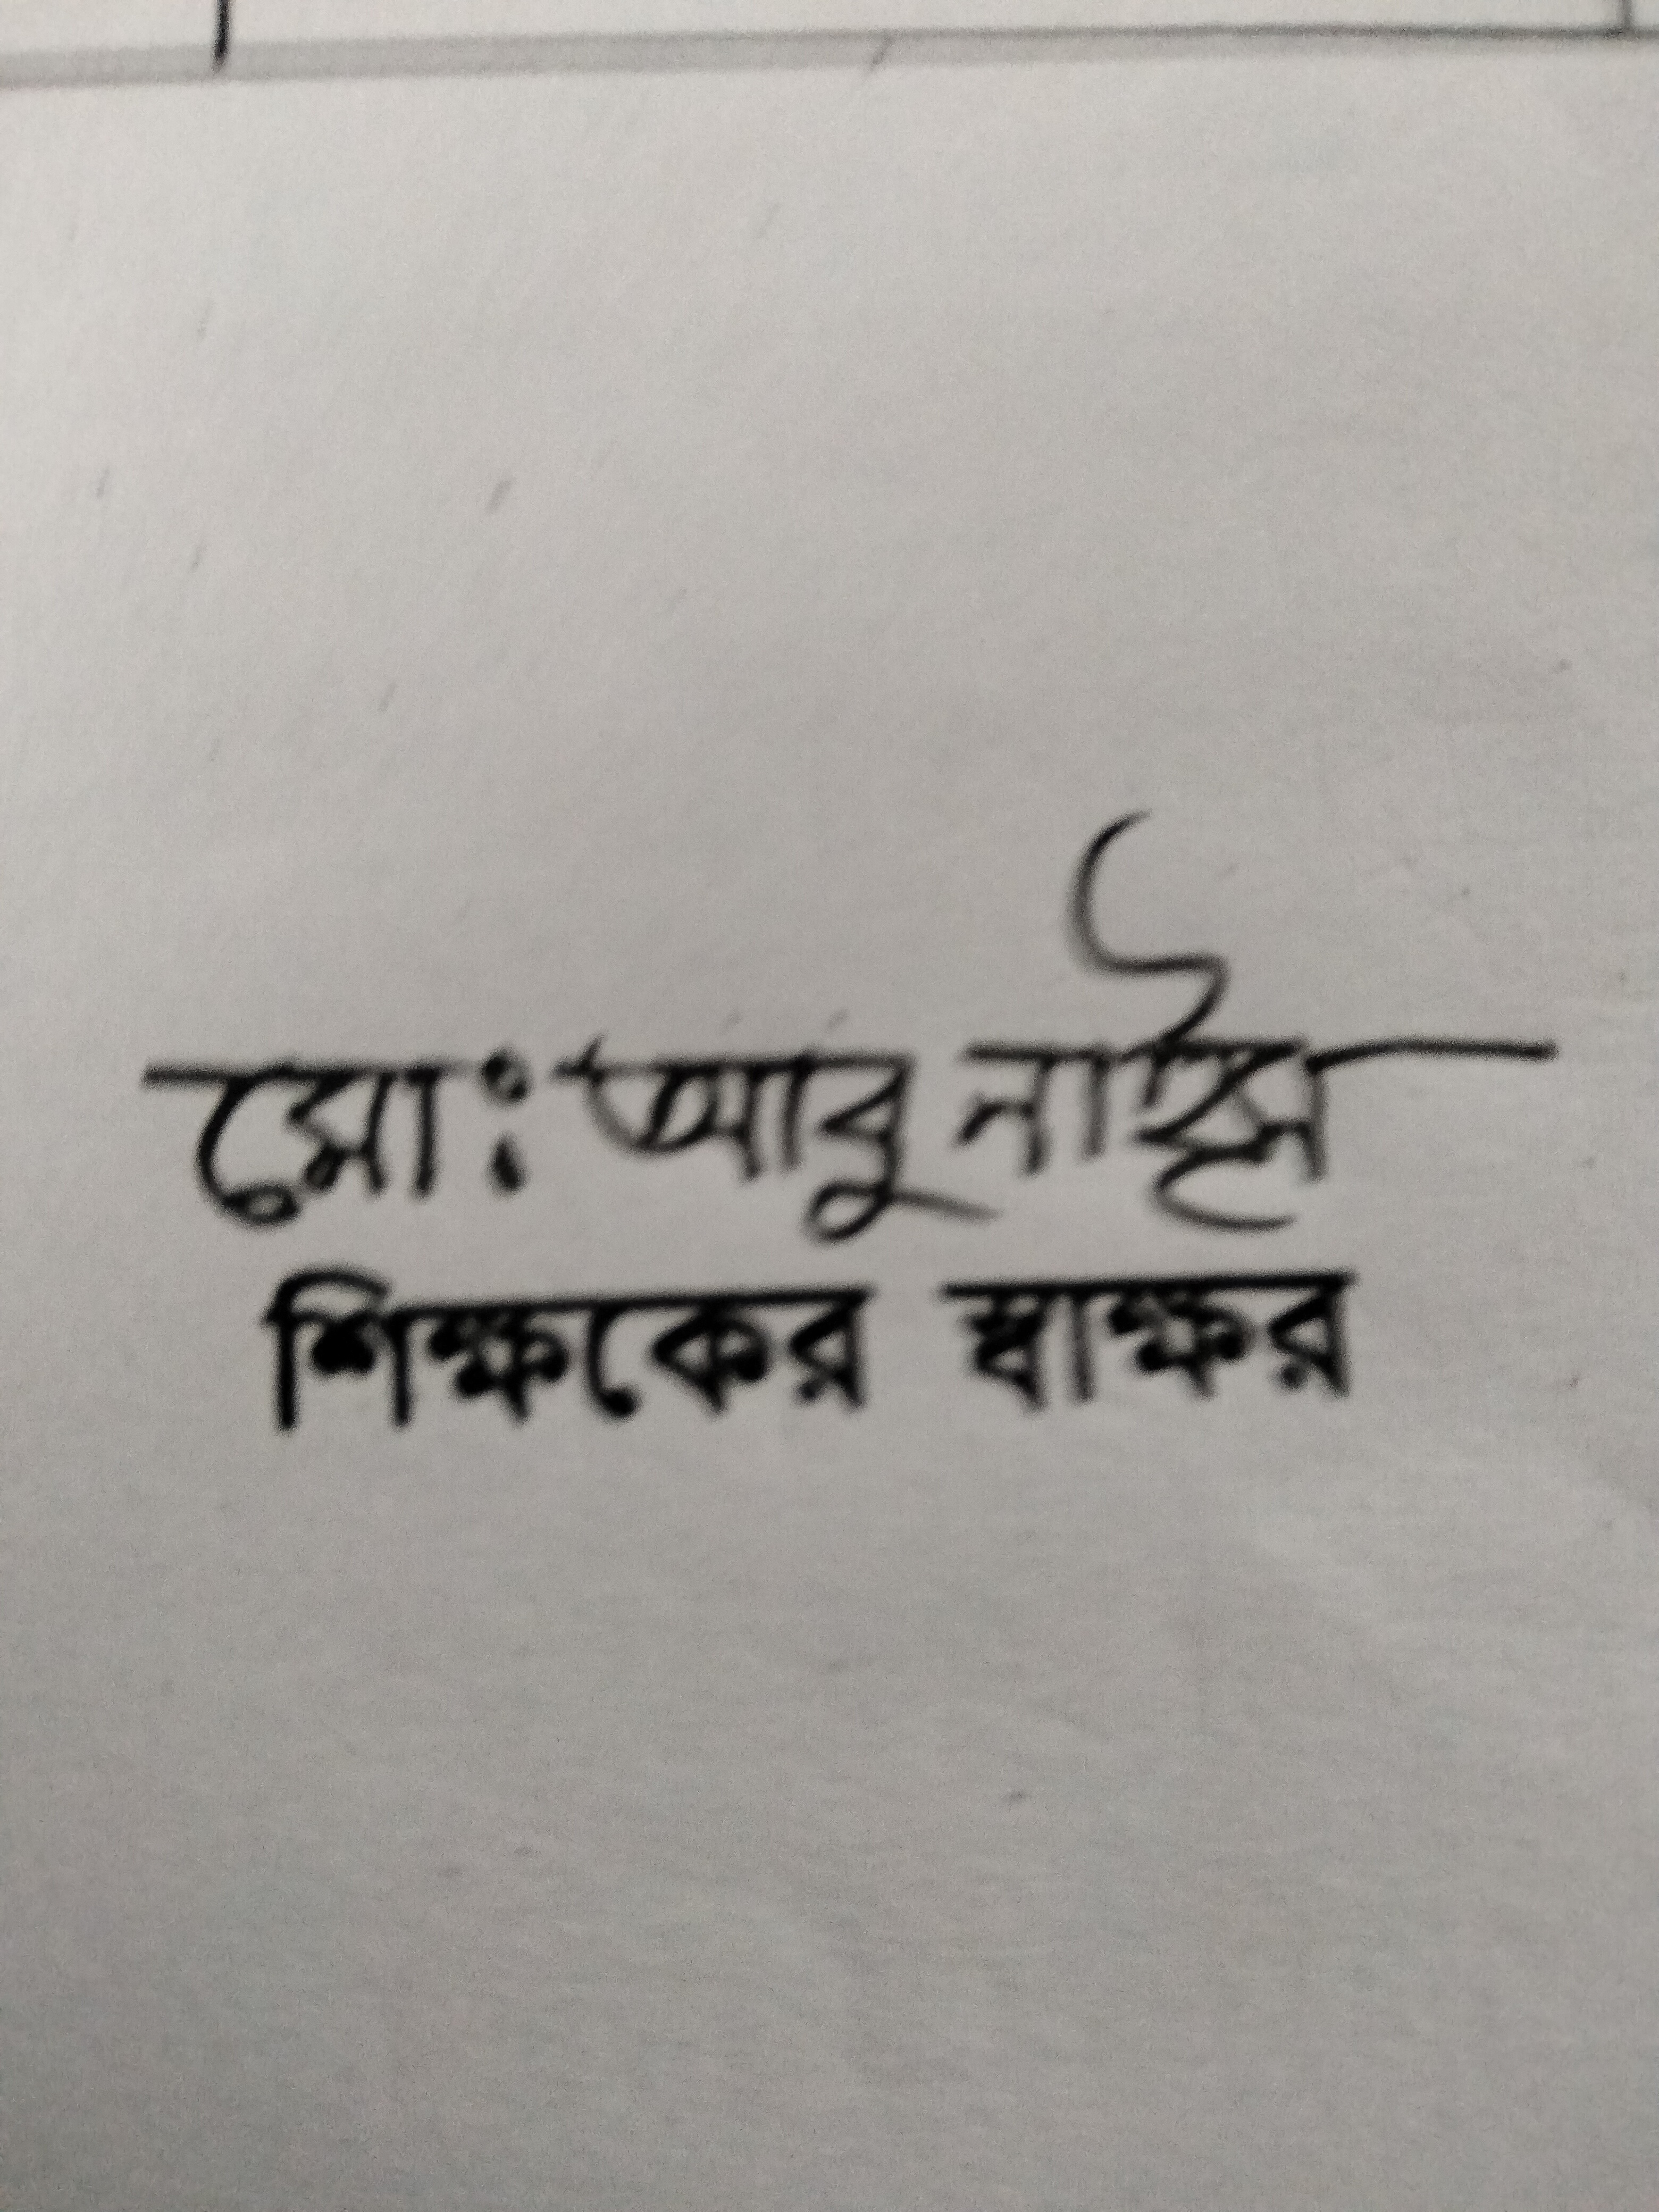 মো: আবু নাঈম
শিক্ষকের স্বাক্ষর